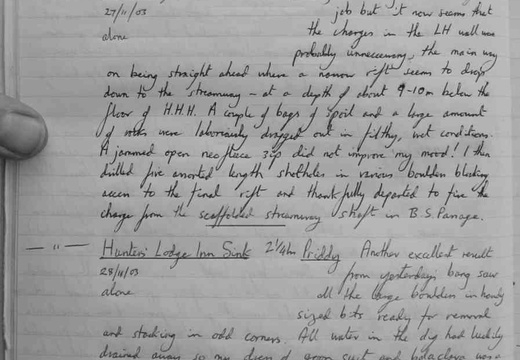 job but it now seems that
27/11/03
the charges in the LH wall were
alone
probably unnecessary, the main way
on being straight ahead where a narrow rift seems to drop
down to the streamway - at a depth of about 9-10m below the
floor of H.H.H. A couple of bags of spoil and a large amount
of rocks were laboriously dragged out in filthy, wet conditions.
A jammed open neofleece zip did not improve my mood! I then
drilled five assorted length shotholes in various boulders blocking
access to the final rift and thankfully departed to fire the
charge from the scaffolded streamway shaft in B.S. Passage.
— " — Hunters' Lodge Inn Sink 2¼hr Priddy Another excellent result
28/11/03
from yesterday's bang saw
alone
all the large boulders in handy
sized bits ready for removal
and stacking in odd corners. All water in the dig had luckily
drained away so my dream of goon suit and balaclava was